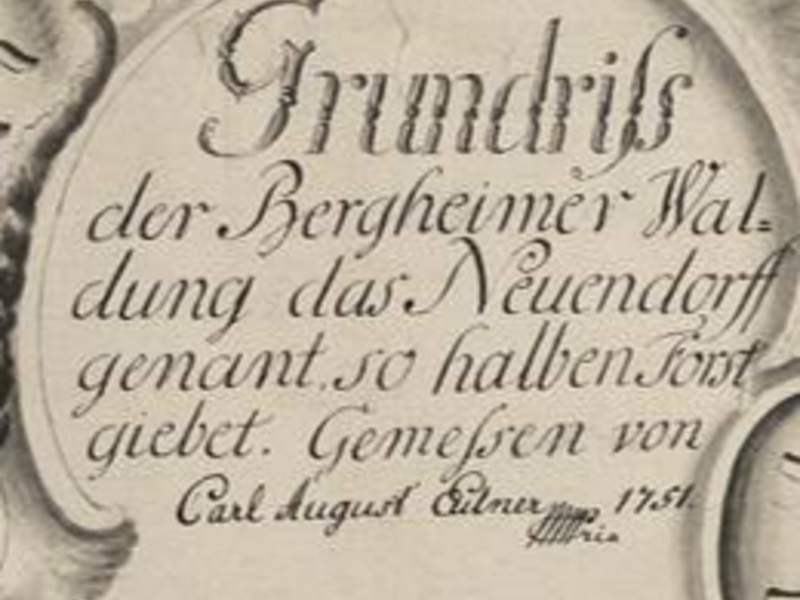 Grundriſs
der Bergheimer Wal=
dung das Neuendorff
genant, so halben Forst
giebet. Gemeſsen von
Carl August Eulner 1751.